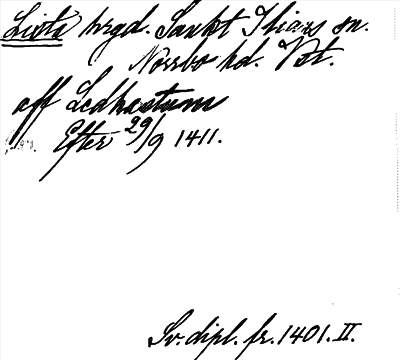 Lista hrgd. Sankt Ilians sn.
Norrbo hd. Vst.
aff Ledhastum
Efter 29/9 1411.
Sv. dipl. fr. 1401. II.